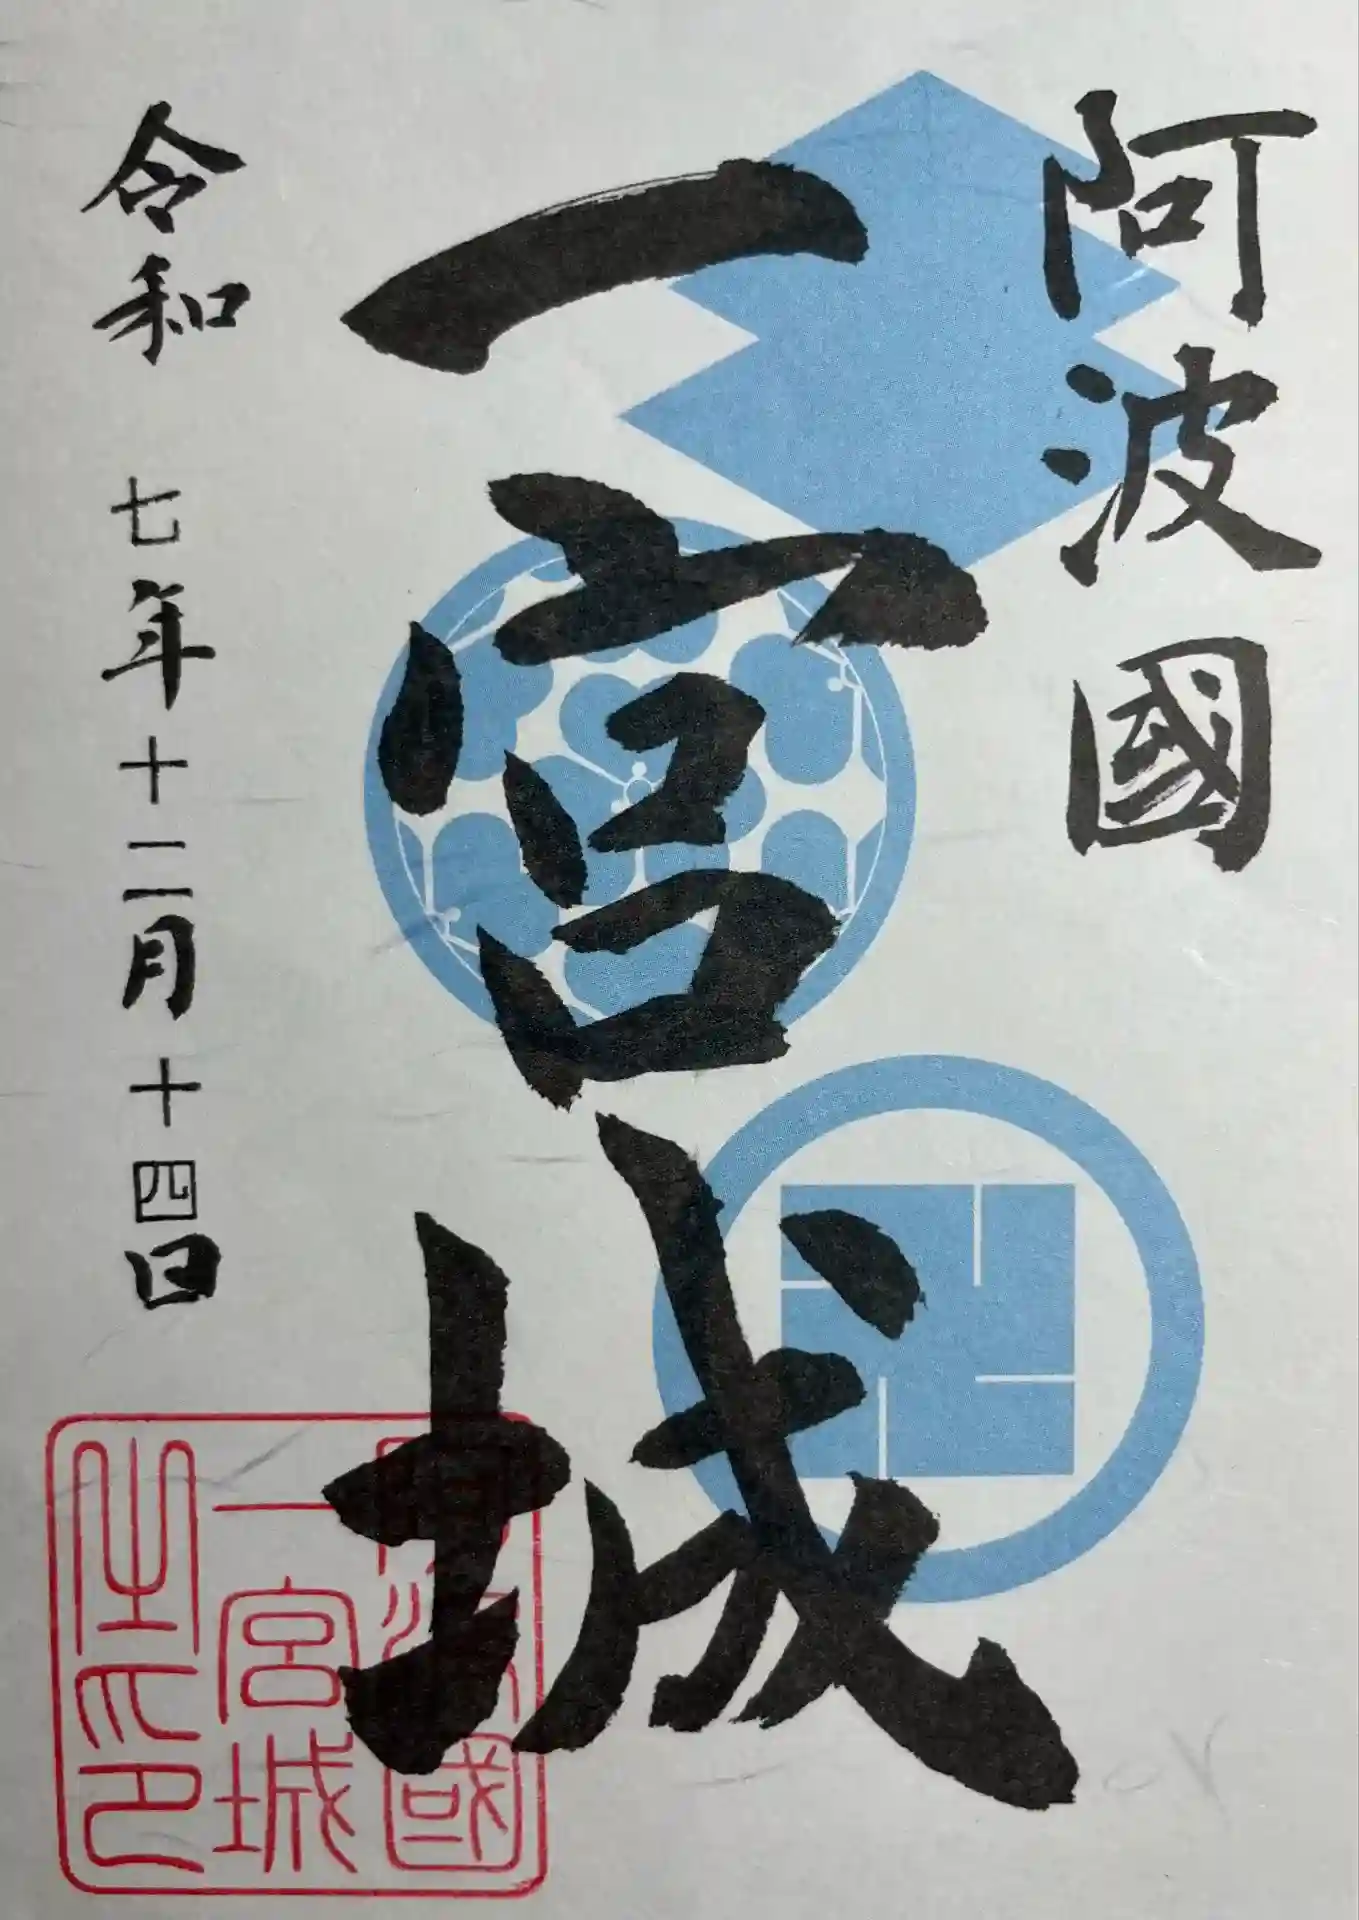 阿波國
一宮城
令和 七年十二月十四日
阿波國
一宮城
之印